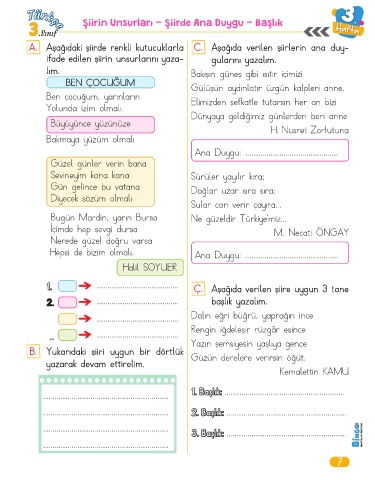 Türkçe
3.Sınıf
Şiirin Unsurları – Şiirde Ana Duygu – Başlık
3
Hafta
A. Aşağıdaki şiirde renkli kutucuklarla
ifade edilen şiirin unsurlarını yaza-
lım.
BEN ÇOCUĞUM
Ben çocuğum, yarınların
Yolunda izim olmalı.
Büyüyünce yüzünüze
Bakmaya yüzüm olmalı
Güzel günler verin bana
Sevineyim kana kana
Gün gelince bu vatana
Diyecek sözüm olmalı
Bugün Mardin, yarın Bursa
İçimde hep sevgi dursa
Nerede güzel doğru varsa
Hepsi de bizim olmalı.
Halil SOYUER
1. ..............................
2. ..............................
..............................
.. ..............................
B. Yukarıdaki şiiri uygun bir dörtlük
yazarak devam ettirelim.
C. Aşağıda verilen şiirlerin ana duy-
gularını yazalım.
Bakışın güneş gibi ısıtır içimizi
Gülüşün aydınlatır üzgün kalpleri anne.
Elimizden şefkatle tutarsın her an bizi
Dünyaya geldiğimiz günlerden beri anne
H. Nusret Zorlutuna
Ana Duygu: ........................................
Sürüler yayılır kıra;
Dağlar uzar sıra sıra;
Sular can verir çayıra...
Ne güzeldir Türkiye'miz...
M. Necati ÖNGAY
Ana Duygu: ........................................
Ç. Aşağıda verilen şiire uygun 3 tane
başlık yazalım.
Dalın eğri büğrü, yaprağın ince
Rengin iğdeleşir rüzgâr esince
Yazın şemsiyesin yaşlıya gence
Güzün derelere verirsin öğüt.
Kemalettin KAMU
1. Başlık: ..................................................
2. Başlık: ..................................................
3. Başlık: ..................................................
Bingo
7